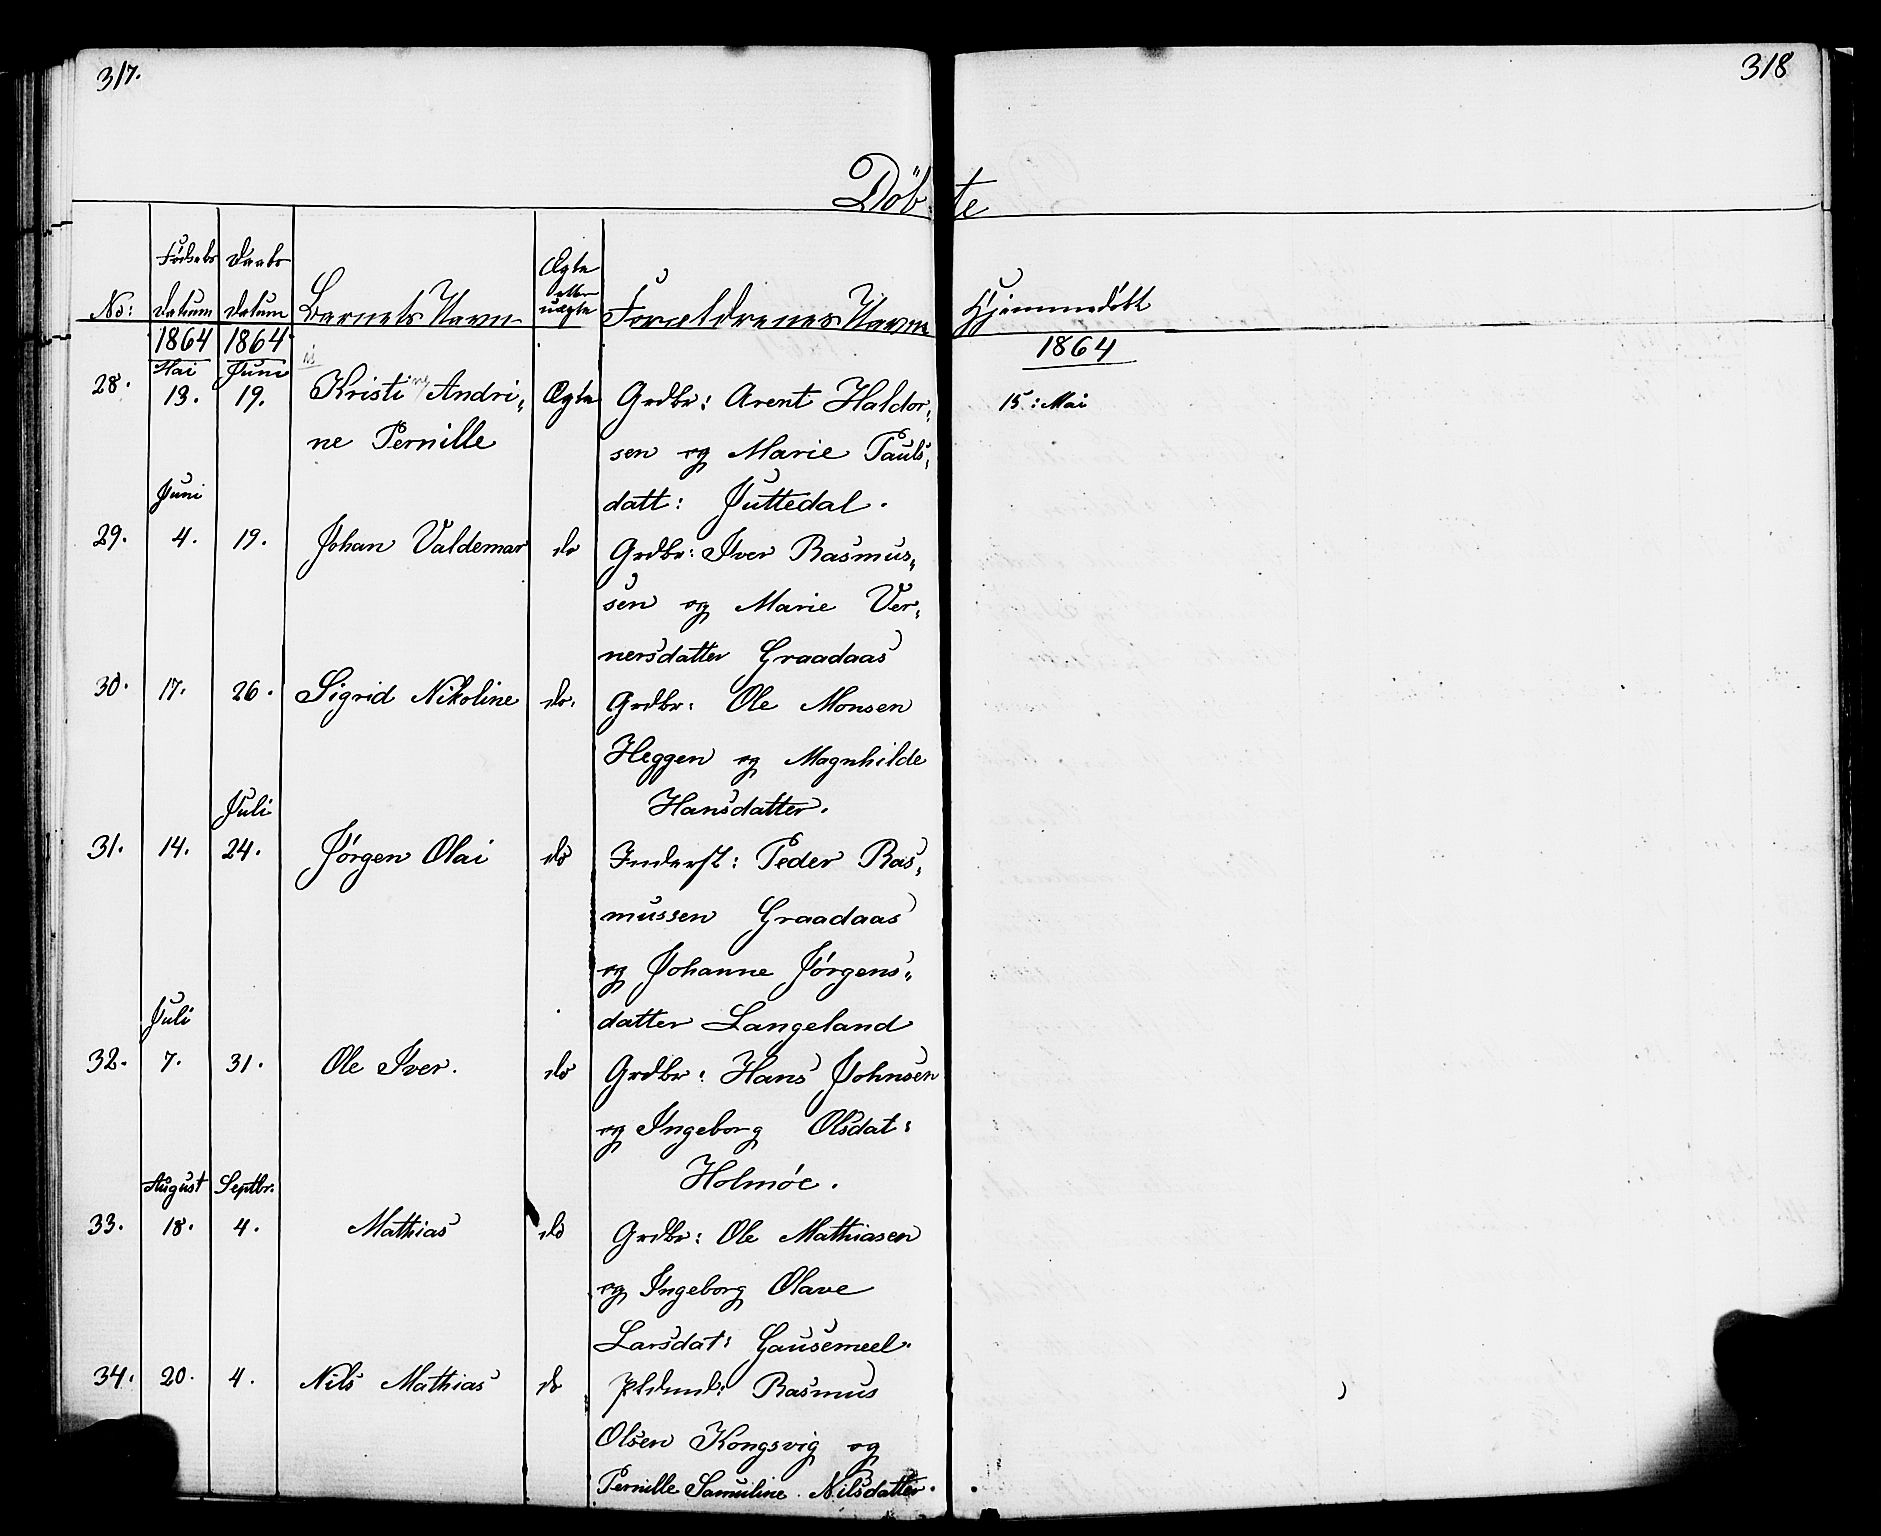 317.
318
Döb-te
No:
Fødsels datum
Daabs datum
Barnets Navn
Ægte eller uægte
Forældrenes Navn
Hjemmedöbt
1864 1864 1864
Mai Juni
28. 13. 19. Kristine Andri- Ægte Grdbr: Arent Haldor- 15: Mai
ne Pernille sen og Marie Pauls-
Juni datt: Juttedal.
29. 4. 19. Johan Valdemar do Grdbr: Iver Rasmus-
sen og Marie Ver-
nersdatter Graadaas
30. 17. 26. Sigrid Nikoline do. Grdbr: Ole Monsen
Heggen og Magnhilde
Juli Hansdatter.
31. 14. 24. Jørgen Olai do Inderst: Peder Ras-
mussen Graadaas
og Johanne Jørgens-
Juli datter Langeland
32. 7. 31. Ole Iver. do Grdbr: Hans Johnsen
og Ingeborg Olsdat:
August Septbr. Holmöe.
33. 18. 4. Mathias do Grdbr: Ole Mathiasen
og Ingeborg Olave
Larsdat: Gausemeel.
34. 20. 4. Nils Mathias do Pldsmd: Rasmus
Olsen Kongsvig og
Pernille Samuline Nilsdatter.